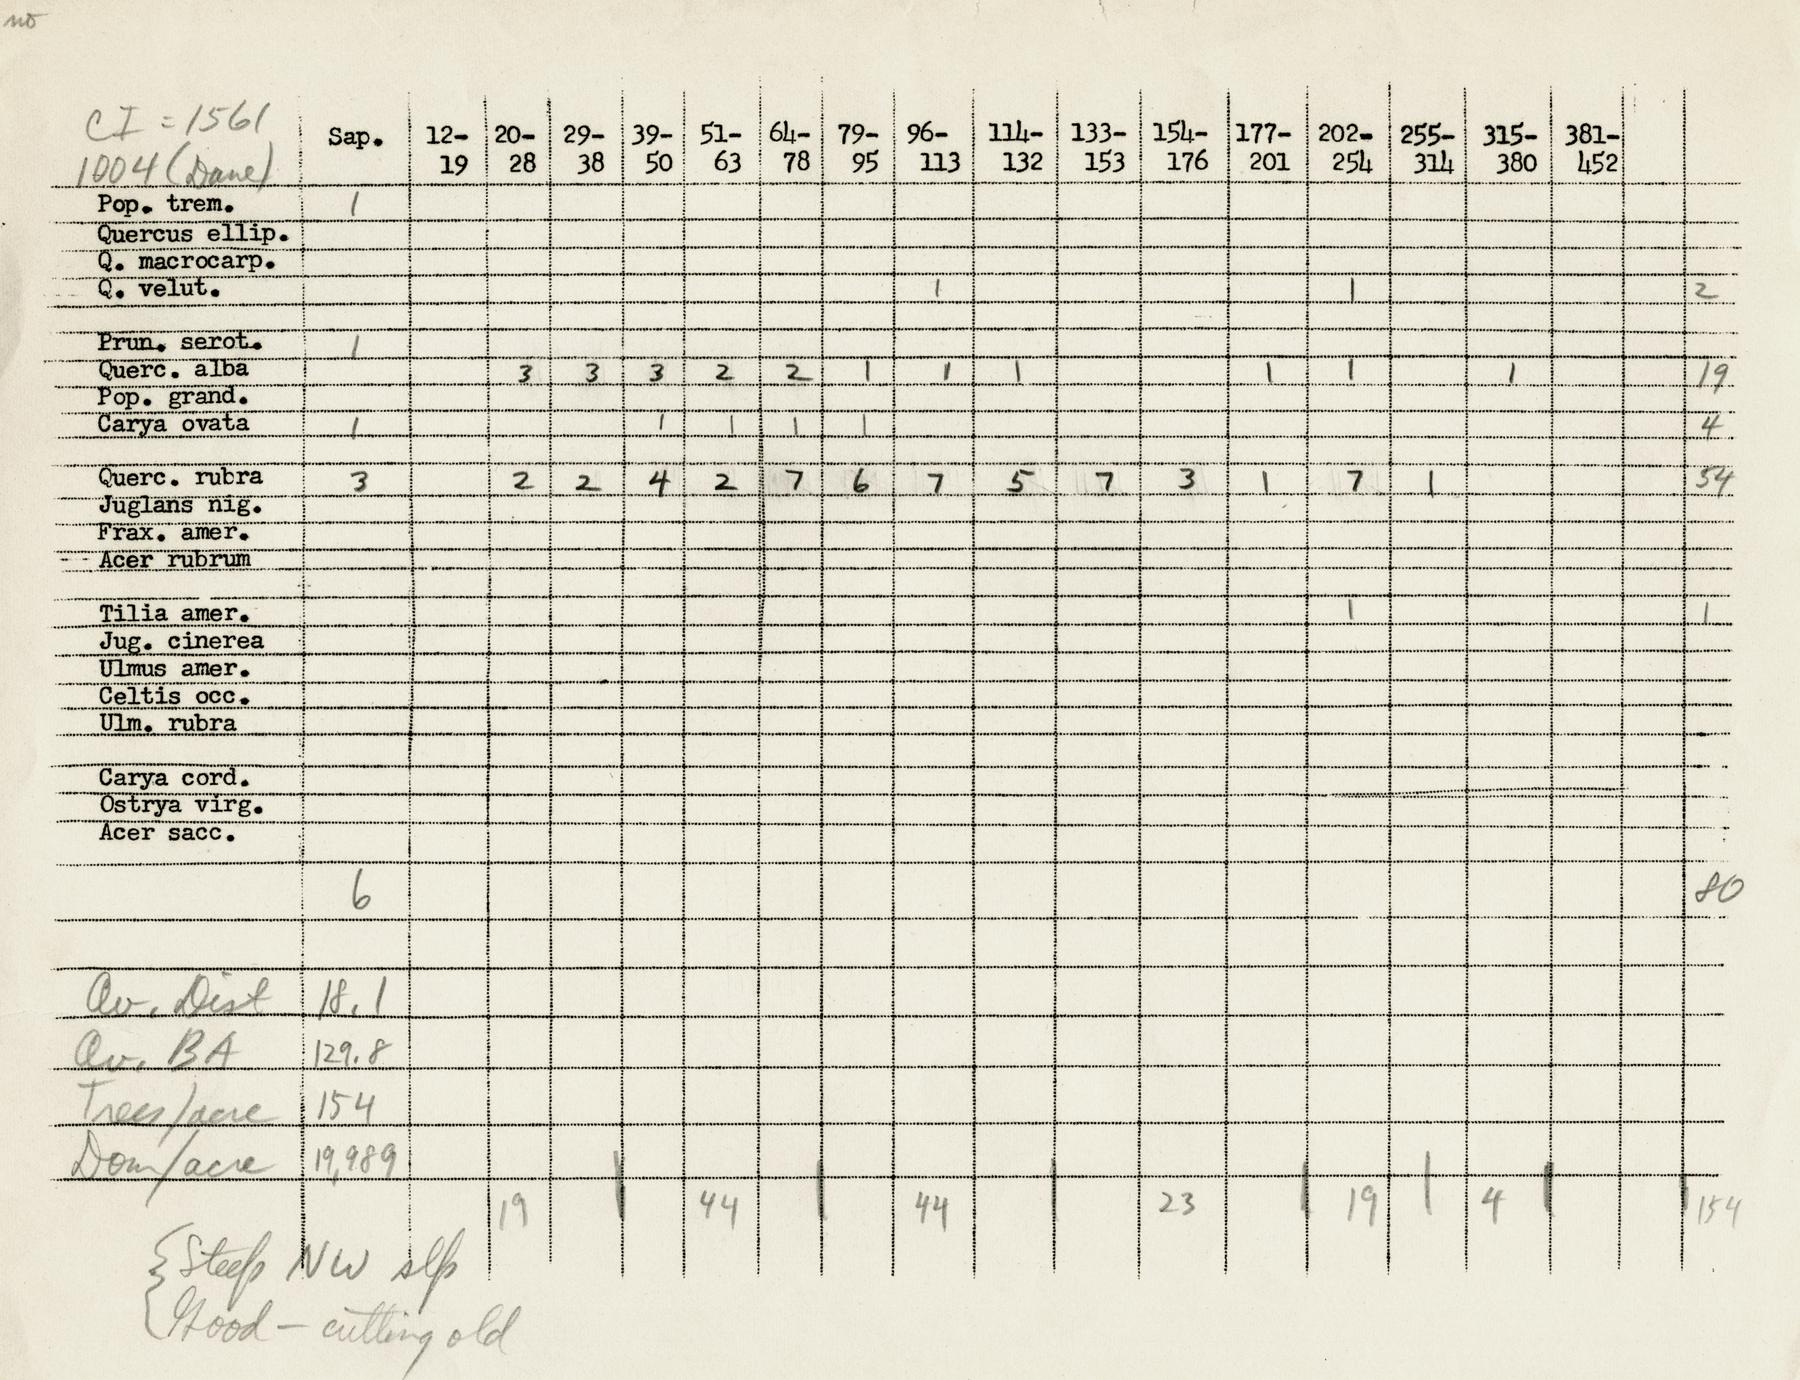 no
CI = 1561
1004 (Dane)
Sap. 12-19 20-28 29-38 39-50 51-63 64-78 79-95 96-113 114-132 133-153 154-176 177-201 202-254 255-314 315-380 381-452
Pop. trem. 1
Quercus ellip.
Q. macrocarp.
Q. velut. 1 1 2
Prun. serot. 1
Querc. alba 3 3 3 2 2 1 1 1 1 1 1 19
Pop. grand.
Carya ovata 1 1 1 1 1 4
Querc. rubra 3 2 2 4 2 7 6 7 5 7 3 1 7 1 54
Juglans nig.
Frax. amer.
Acer rubrum
Tilia amer. 1 1
Jug. cinerea
Ulmus amer.
Celtis occ.
Ulm. rubra
Carya cord.
Ostrya virg.
Acer sacc.
6 80
Av. Dist 18.1
Av. BA 129.8
Trees/acre 154
Dom/acre 19,989
19 44 44 23 19 4 154
Steep NW slp
Good - cutting old